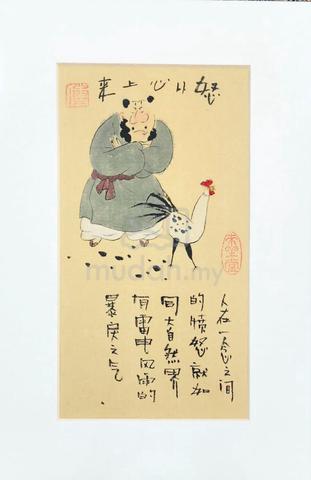 怒从心上来
人在一念之间
的愤怒就如
同大自然界
有雷电风雨的
暴戾之气
mudah.my